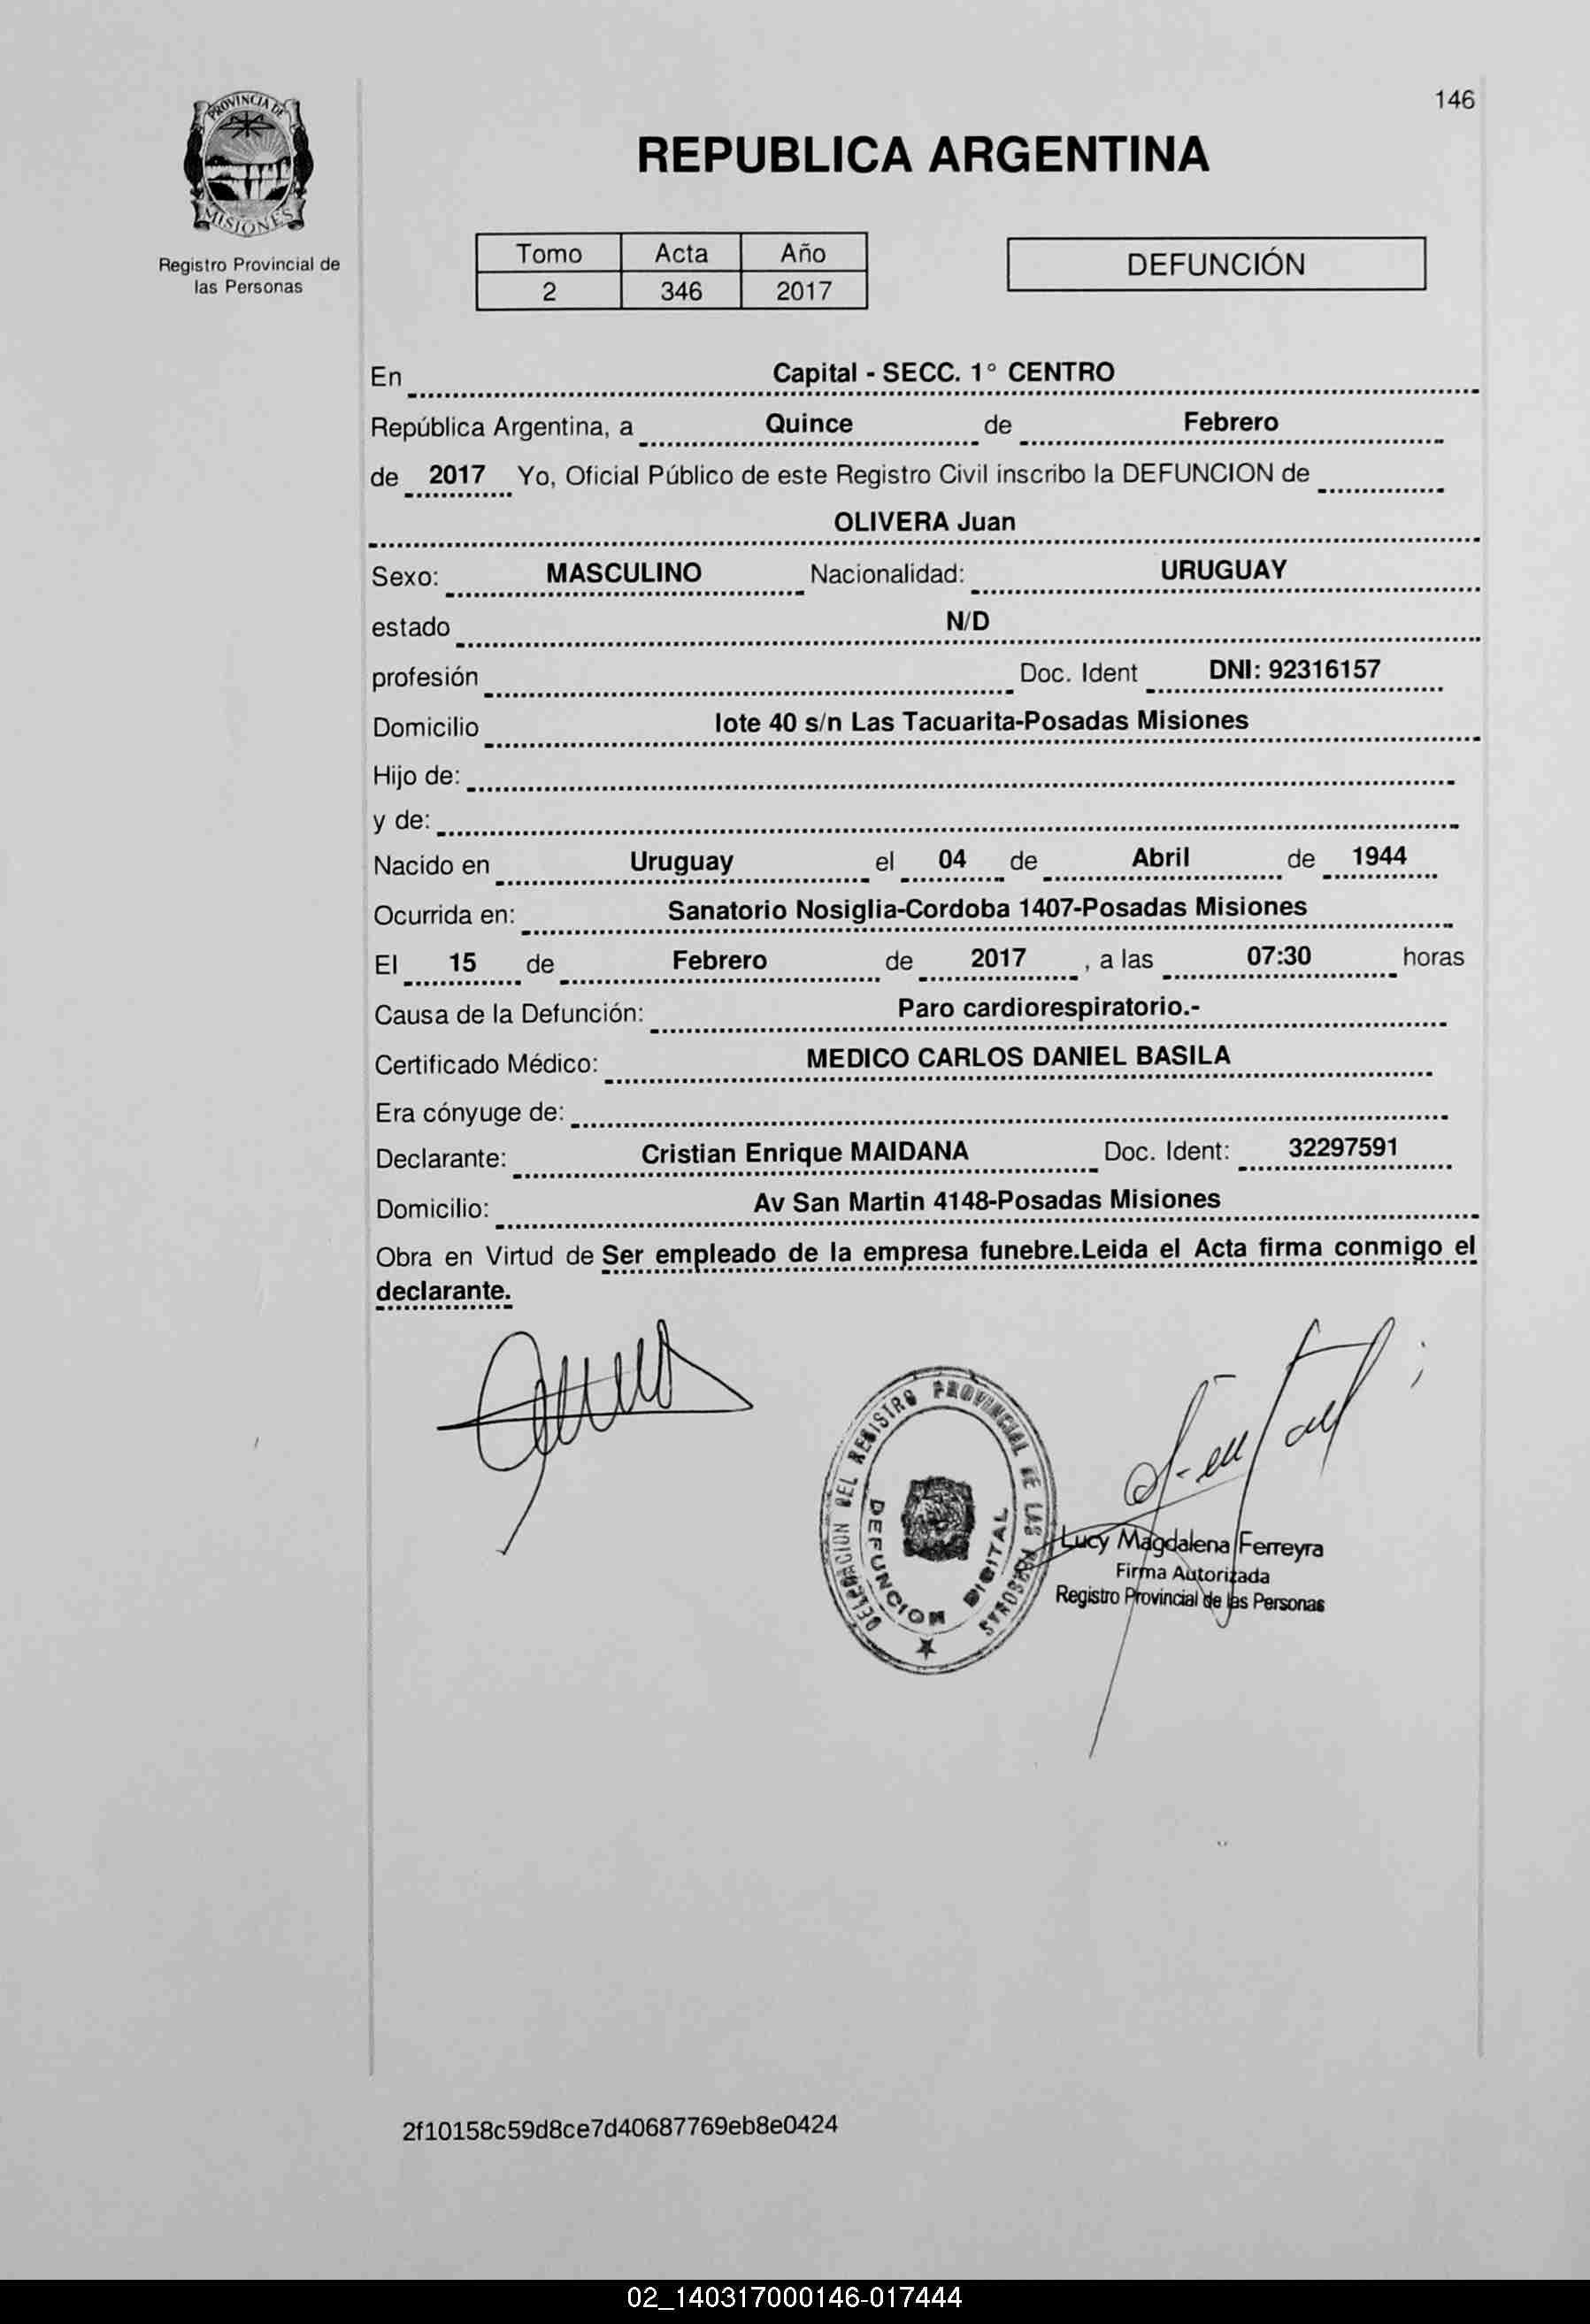 146
PROVINCIA DE
MISIONES
Registro Provincial de
las Personas
REPUBLICA ARGENTINA
Tomo Acta Año
2 346 2017
DEFUNCIÓN
En Capital - SECC. 1° CENTRO
República Argentina, a Quince de Febrero
de 2017 Yo, Oficial Público de este Registro Civil inscribo la DEFUNCION de
OLIVERA Juan
Sexo: MASCULINO Nacionalidad: URUGUAY
estado N/D
profesión Doc. Ident DNI: 92316157
Domicilio lote 40 s/n Las Tacuarita-Posadas Misiones
Hijo de:
y de:
Nacido en Uruguay el 04 de Abril de 1944
Ocurrida en: Sanatorio Nosiglia-Cordoba 1407-Posadas Misiones
El 15 de Febrero de 2017 , a las 07:30 horas
Causa de la Defunción: Paro cardiorespiratorio.-
Certificado Médico: MEDICO CARLOS DANIEL BASILA
Era cónyuge de:
Declarante: Cristian Enrique MAIDANA Doc. Ident: 32297591
Domicilio: Av San Martin 4148-Posadas Misiones
Obra en Virtud de Ser empleado de la empresa funebre.Leida el Acta firma conmigo el
declarante.
DELEGACION DEL REGISTRO PROVINCIAL DE LAS PERSONAS
DEFUNCION DIGITAL
Lucy Magdalena Ferreyra
Firma Autorizada
Registro Provincial de las Personas
2f10158c59d8ce7d40687769eb8e0424
02_140317000146-017444